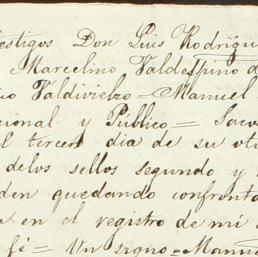 estigos Don Luis Rodrigu
Marcelino Valdespino d
no Valdivielzo = Manuel
cional y Público = Saco
l tercer dia de su oto
delos sellos segundo y
den quedando confronta
a en el registro de mi
fé = Un signo = Manu